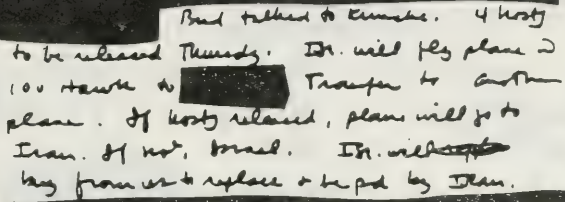 Bud talked to Kimche. 4 hostg
to be released Thursdy. Isr. will fly plane w
100 Hawk to Transfer to another
plane. If hostg released, plane will go to
Iran. If not, Israel. Isr. will
buy from us to replace & be pd by Iran.